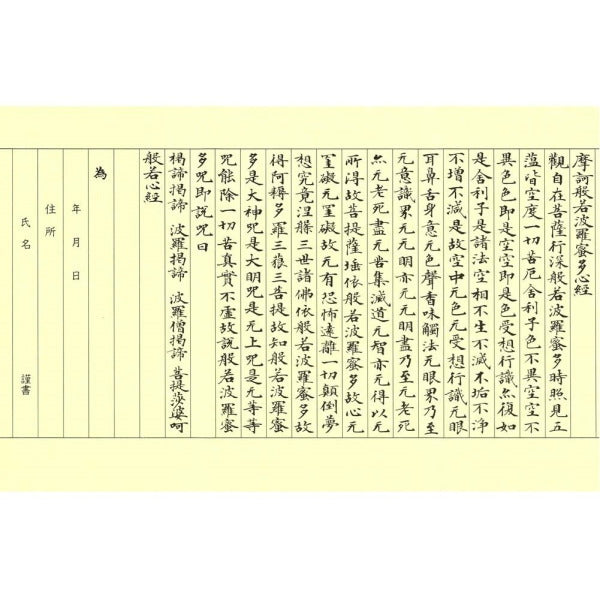 摩訶般若波羅蜜多心經
觀自在菩薩行深般若波羅蜜多時照見五
蘊皆空度一切苦厄舍利子色不異空空不
異色色即是空空即是色受想行識亦復如
是舍利子是諸法空相不生不滅不垢不浄
不増不減是故空中无色无受想行識无眼
耳鼻舌身意无色聲香味觸法无眼界乃至
无意識界无无明亦无无明盡乃至无老死
亦无老死盡无苦集滅道无智亦无得以无
所得故菩提薩埵依般若波羅蜜多故心无
罣礙无罣礙故无有恐怖遠離一切顛倒夢
想究竟涅槃三世諸佛依般若波羅蜜多故
得阿耨多羅三藐三菩提故知般若波羅蜜
多是大神呪是大明呪是无上呪是无等等
呪能除一切苦真實不虚故説般若波羅蜜
多呪即説呪曰
揭諦揭諦 波羅揭諦 波羅僧揭諦 菩提薩婆訶
般若心經
為
年 月 日
住所
氏名 謹書